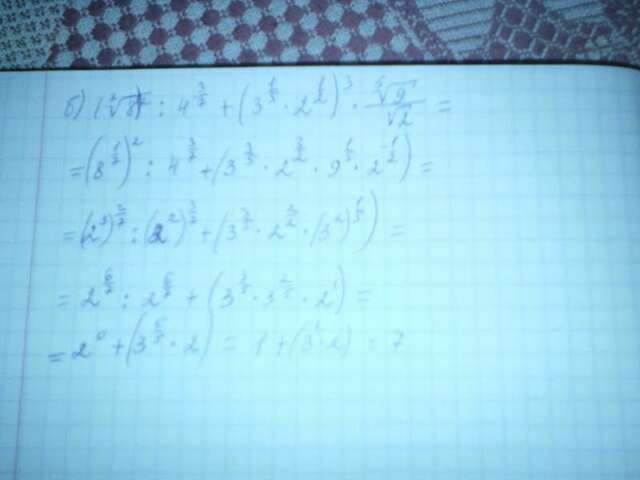 б) (√8)² : 4^{3/2} + (3^{1/5} · 2^{1/2})³ · ⁵√9/√2 =
= (8^{1/2})² : 4^{3/2} + (3^{3/5} · 2^{3/2} · 9^{1/5} · 2^{-1/2}) =
= (2³)^{2/2} : (2²)^{3/2} + (3^{3/5} · 2^{2/2} · (3²)^{1/5}) =
= 2^{6/2} : 2^{6/2} + (3^{3/5} · 3^{2/5} · 2¹) =
= 2⁰ + (3^{5/5} · 2) = 1 + (3¹ · 2) = 7